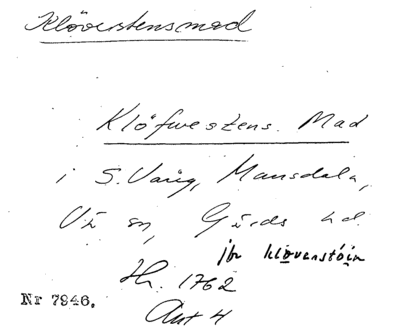 Klöverstensmad
Klöfwestens Mad
i S. Vång, Mansdala,
Vä sn, Gärds hd.
jfr klovenstöin
Hr. 1762
Nr 7946.
Akt 4